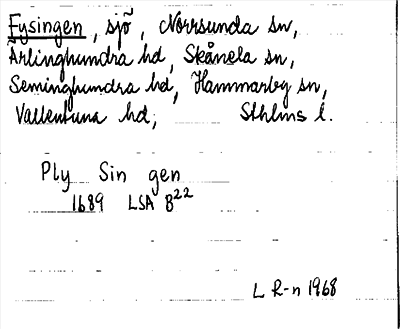 Fysingen, sjö, Norrsunda sn,
Ärlinghundra hd, Skånela sn,
Seminghundra hd, Hammarby sn,
Vallentuna hd, Sthlms l.
Ply Sin gen
1689 LSA B22
L R-n 1968